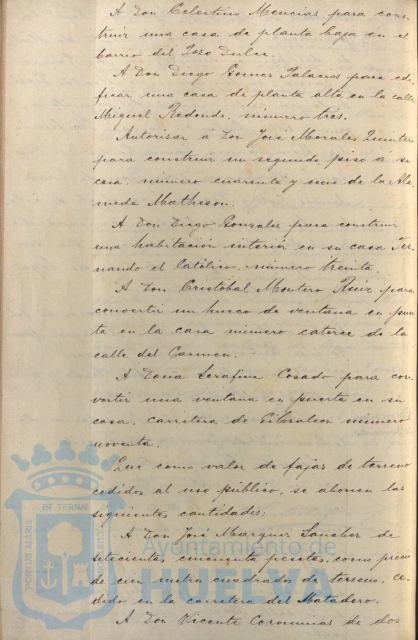 A Don Celestino Mencias para cons-
truir una casa de planta baja en el
barrio del Pozo Dulce.
A Don Diego Gomez Palacios para edi-
ficar una casa de planta alta en la calle
Miguel Redondo, número tres.
Autorizar a Don José Morales Quintero
para construir un segundo piso a su
casa, número cuarenta y seis de la Ala-
meda Matheson.
A Don Diego Gonzalez para construir
una habitación interior en su casa Fer-
nando el Católico, número treinta.
A Don Cristóbal Montero Ruiz para
convertir un hueco de ventana en puer-
ta en la casa número catorce de la
calle del Carmen.
A Doña Serafina Cosado para con-
vertir una ventana en puerta en su
casa, carretera de Gibraleon número
noventa.
Que como valor de fajas de terreno
cedidos al uso público, se abonen las
siguientes cantidades:
A Don José Marquez Sanchez de
setecientas cincuenta pesetas, como precio
de cien metros cuadrados de terreno, ce-
dido en la carretera del Matadero.
A Don Vicente Corominas de dos
PORTUS MARIS ET TERRAE CUSTODIA
Ayuntamiento de
HUELVA